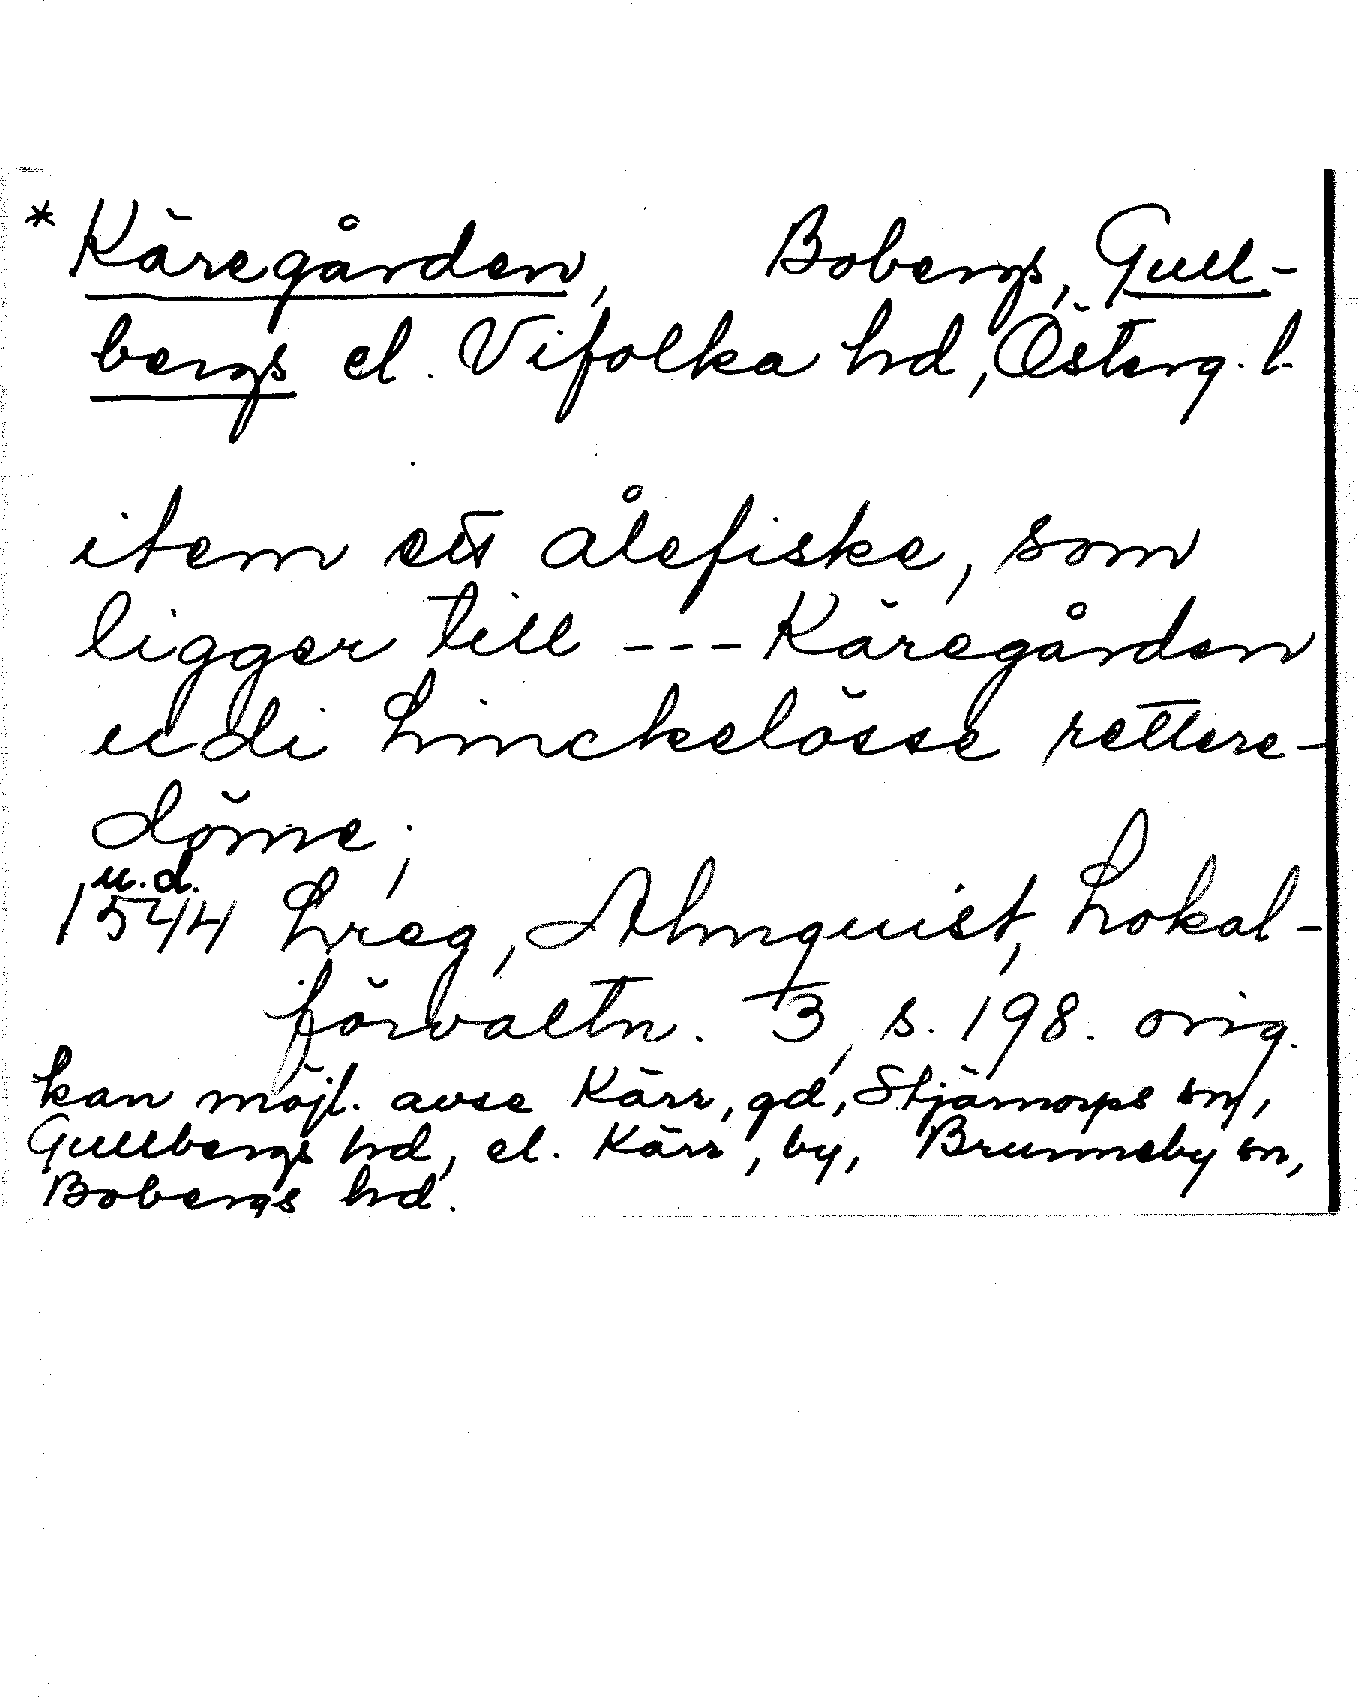 * Käregården, Bobergs, Gull-
bergs el. Vifolka hd, Österg. l.
item ett ålefiske, som
ligger till --- Käregården
udi Linckelösse rettere-
döme;
u.d.
1544 Lreg, Almquist, Lokal-
förvaltn. 3, s. 198. orig.
kan möjl. avse Kärr, gd, Stjärnorps sn,
Gullbergs hd, el. Kärr, by, Brunneby sn,
Bobergs hd.